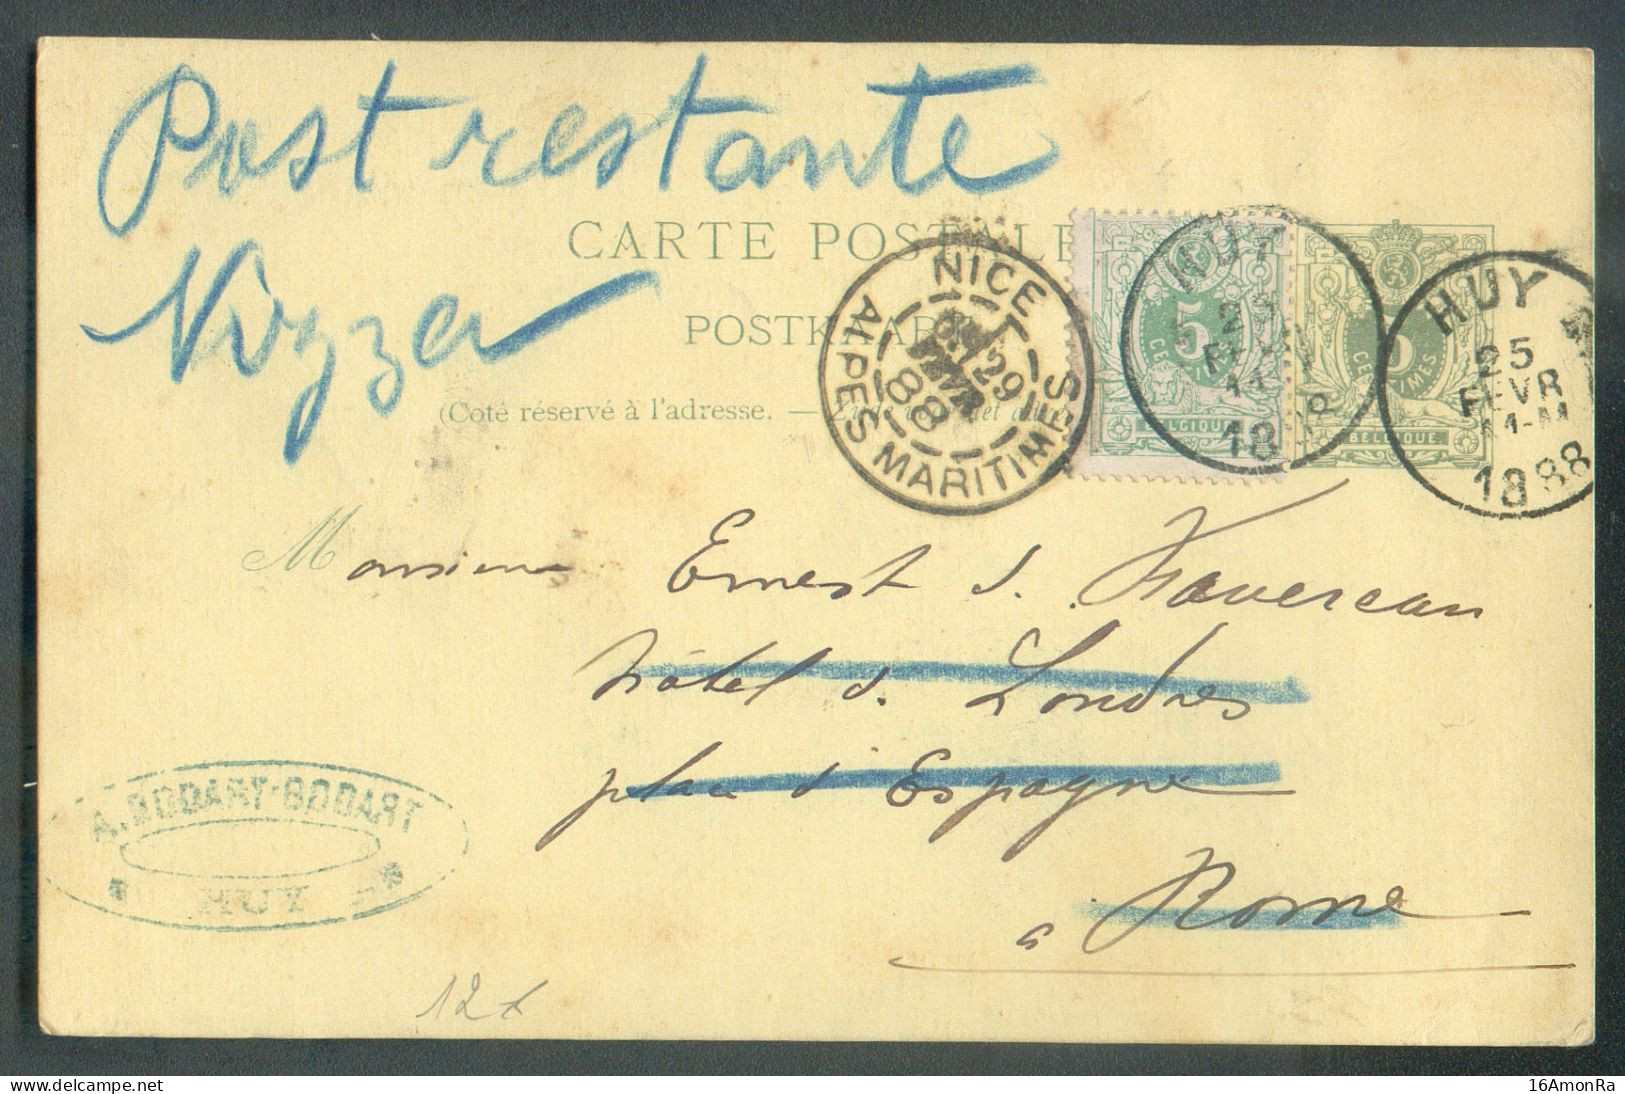 Post restante
Nizza
CARTE POSTALE
POSTKAAR
(Coté réservé à l'adresse. —
NICE
29
FEVR
88
ALPES MARITIMES
5
CENTIMES
BELGIQUE
HUY
18
5
CENTIMES
BELGIQUE.
HUY
25
FEVR
11-M
1888
Monsieur Ernest d.
hôtel d. Londres
place d'Espagne
à Rome
A. GODART-GODART
HUY
12
16AmonRa